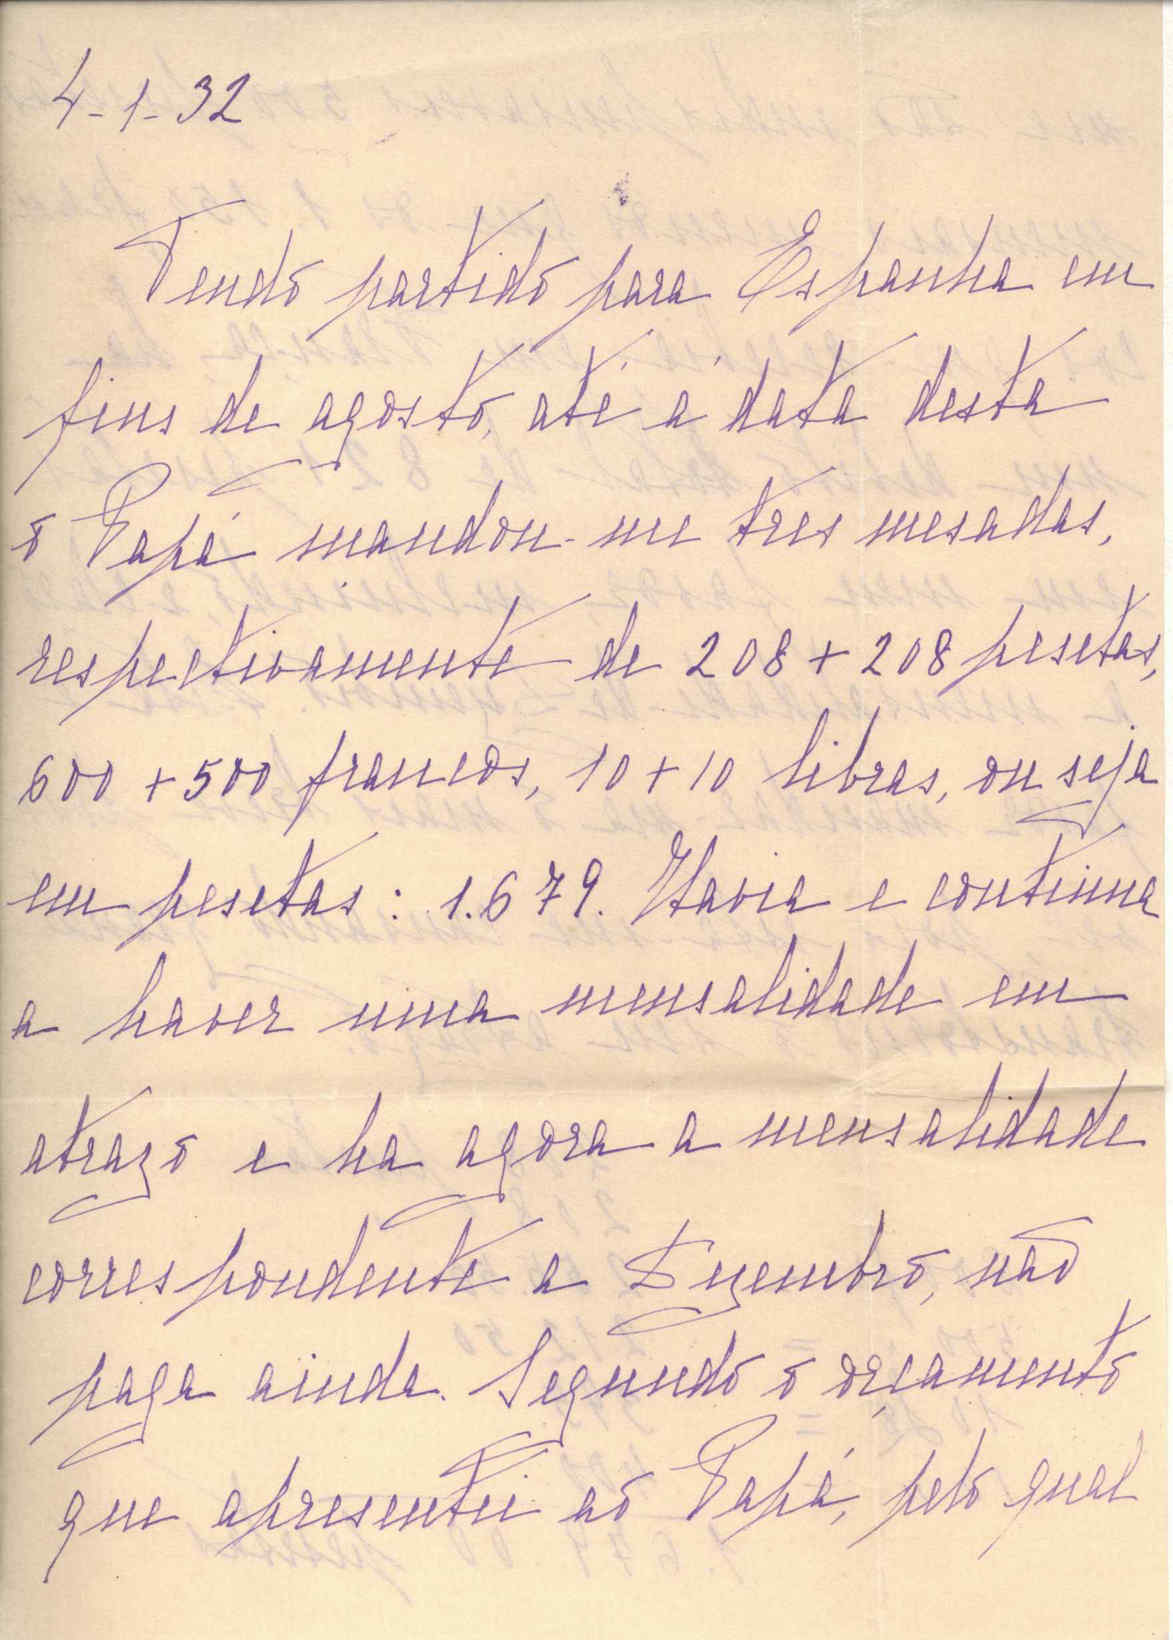 4-1-32
Tendo partido para Espanha em
fins de agosto, até á data desta
o Papá mandou-me tres mesadas,
respectivamente de 208 + 208 pesetas,
600 + 500 francos, 10 + 10 libras, ou seja
em pesetas: 1.679. Havia e continua
a haver uma mensalidade em
atrazo e ha agora a mensalidade
correspondente a Dezembro, não
paga ainda. Segundo o orçamento
que apresentei ao Papá, pelo qual